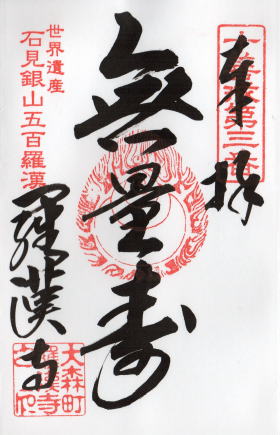 奉拝
無量寿
世界遺産
石見銀山五百羅漢
羅漢寺
大森町
羅漢寺